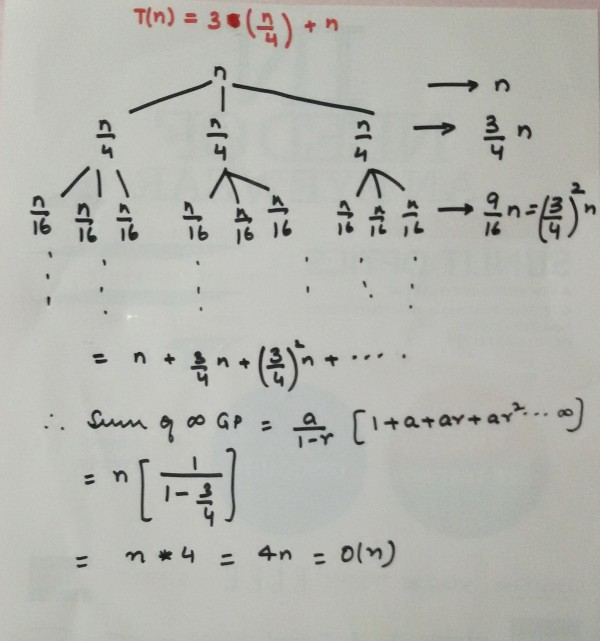 T(n) = 3 (n/4) + n
n → n
n/4 n/4 n/4 → 3/4 n
n/16 n/16 n/16 n/16 n/16 n/16 n/16 n/16 n/16 → 9/16 n = (3/4)² n
= n + 3/4 n + (3/4)² n + ....
∴ Sum of ∞ GP = a/1-r [1+a+ar+ar²...∞]
= n [1/1-3/4]
= n * 4 = 4n = O(n)